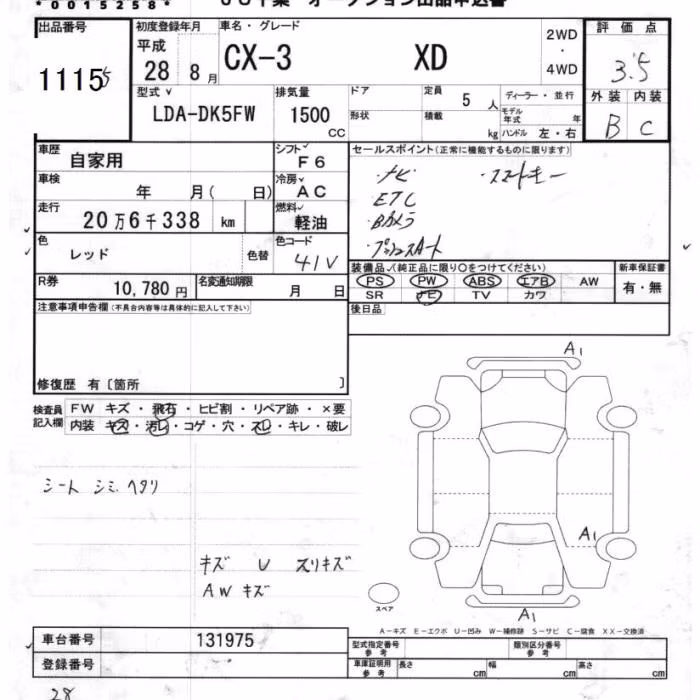 *0015258*
オークション出品申込書
出品番号
1115
初度登録年月
平成
28 8月
車名・グレード
CX-3 XD
2WD
・
4WD
評価点
3.5
外装 内装
B C
型式
LDA-DK5FW
排気量
1500
CC
ドア
形状
定員 5 人
積載 kg
ディーラー・並行
モデル年式 年
ハンドル 左・右
車歴
自家用
シフト
F6
セールスポイント(正常に機能するものに限ります)
・ナビ ・スマートキー
ETC
・Bカメラ
・プッシュスタート
車検
年 月( 日)
冷房
AC
走行
20万6千338 km
燃料
軽油
色
レッド
色替
色コード
41V
装備品(純正品に限り○をつけてください)
新車保証書
PS PW ABS エアB AW
SR ナビ TV カワ
有・無
R券
10,780円
名変通知期限
月 日
後日品
注意事項申告欄(不具合内容等は具体的に記入して下さい)
修復歴 有〔箇所 〕
検査員
記入欄
FW キズ・飛石・ヒビ割・リペア跡・×要
内装 キズ・汚レ・コゲ・穴・スレ・キレ・破レ
シート シミ、ヘタリ
キズ U スリキズ
AW キズ
A1
A1
A1
スペア
A-キズ E-エクボ U-凹み W-補修跡 S-サビ C-腐食 XX-交換済
車台番号
131975
登録番号
型式指定番号
参考
類別区分番号
参考
車庫証明用
参考
長さ cm 幅 cm 高さ cm
28